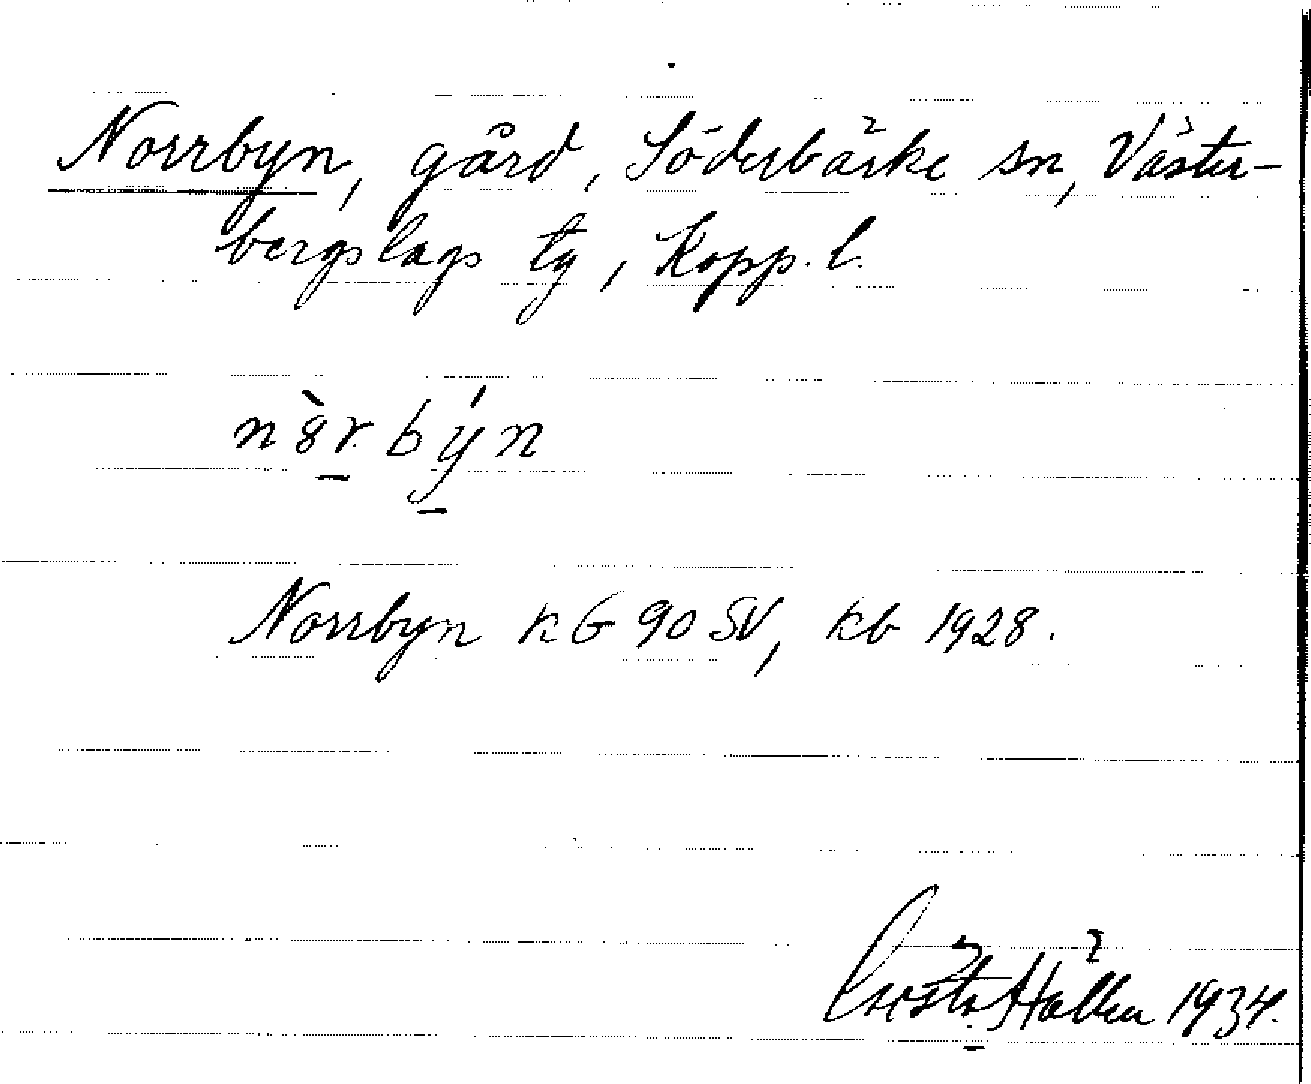 Norrbyn, gård, Söderbärke sn, Väster-
bergslags tg, Kopp. l.
Norrbyn KG 90 SV, kb 1928.
Hallen 1934.